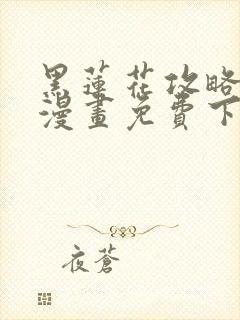 黑蓮花攻略
漫畫免費下
夜蒼